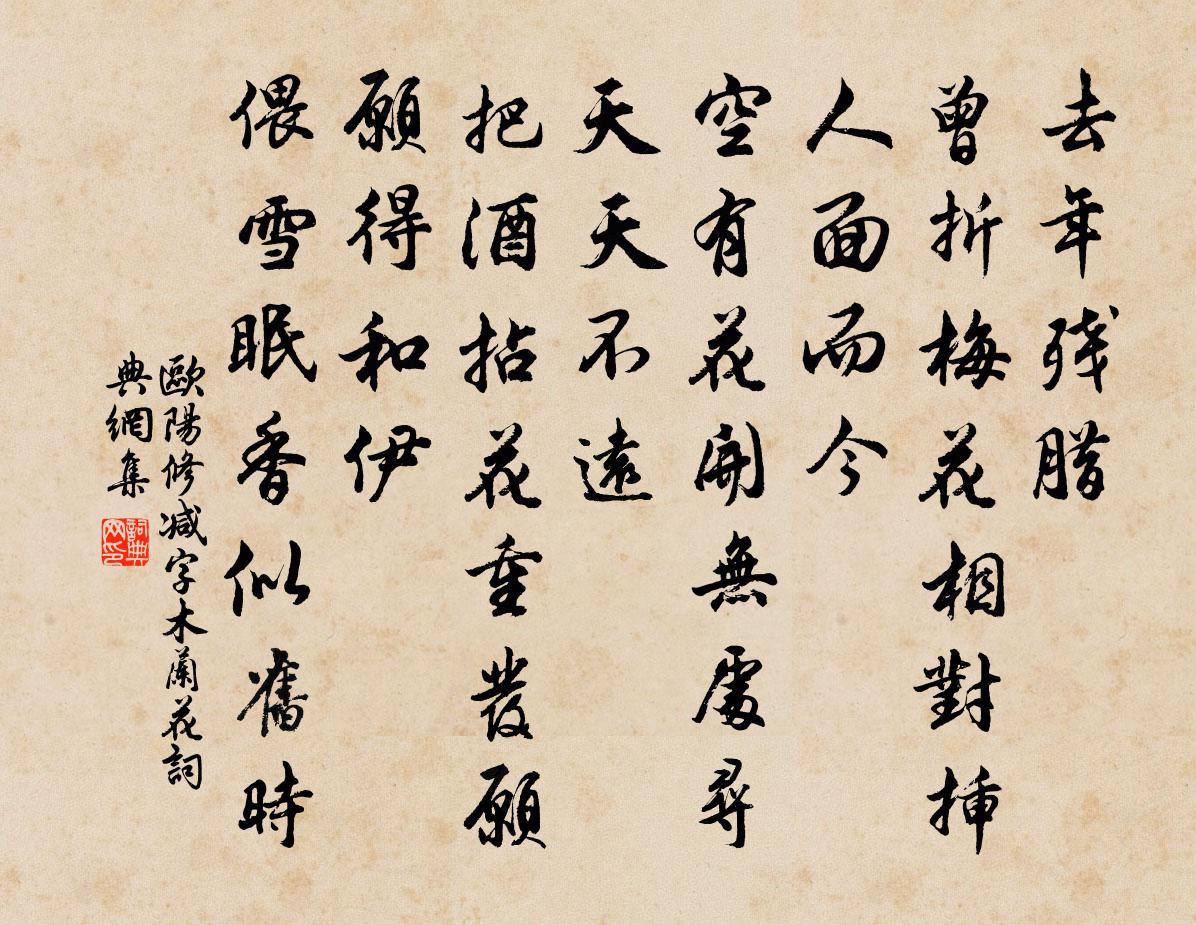 去年残腊
曾折梅花相對挿
人面而今
空有花開無處尋
天天不遠
把酒拈花重發願
願得和伊
偎雪眠香似舊時
歐陽修减字木蘭花詞
典網集
詞典
网印